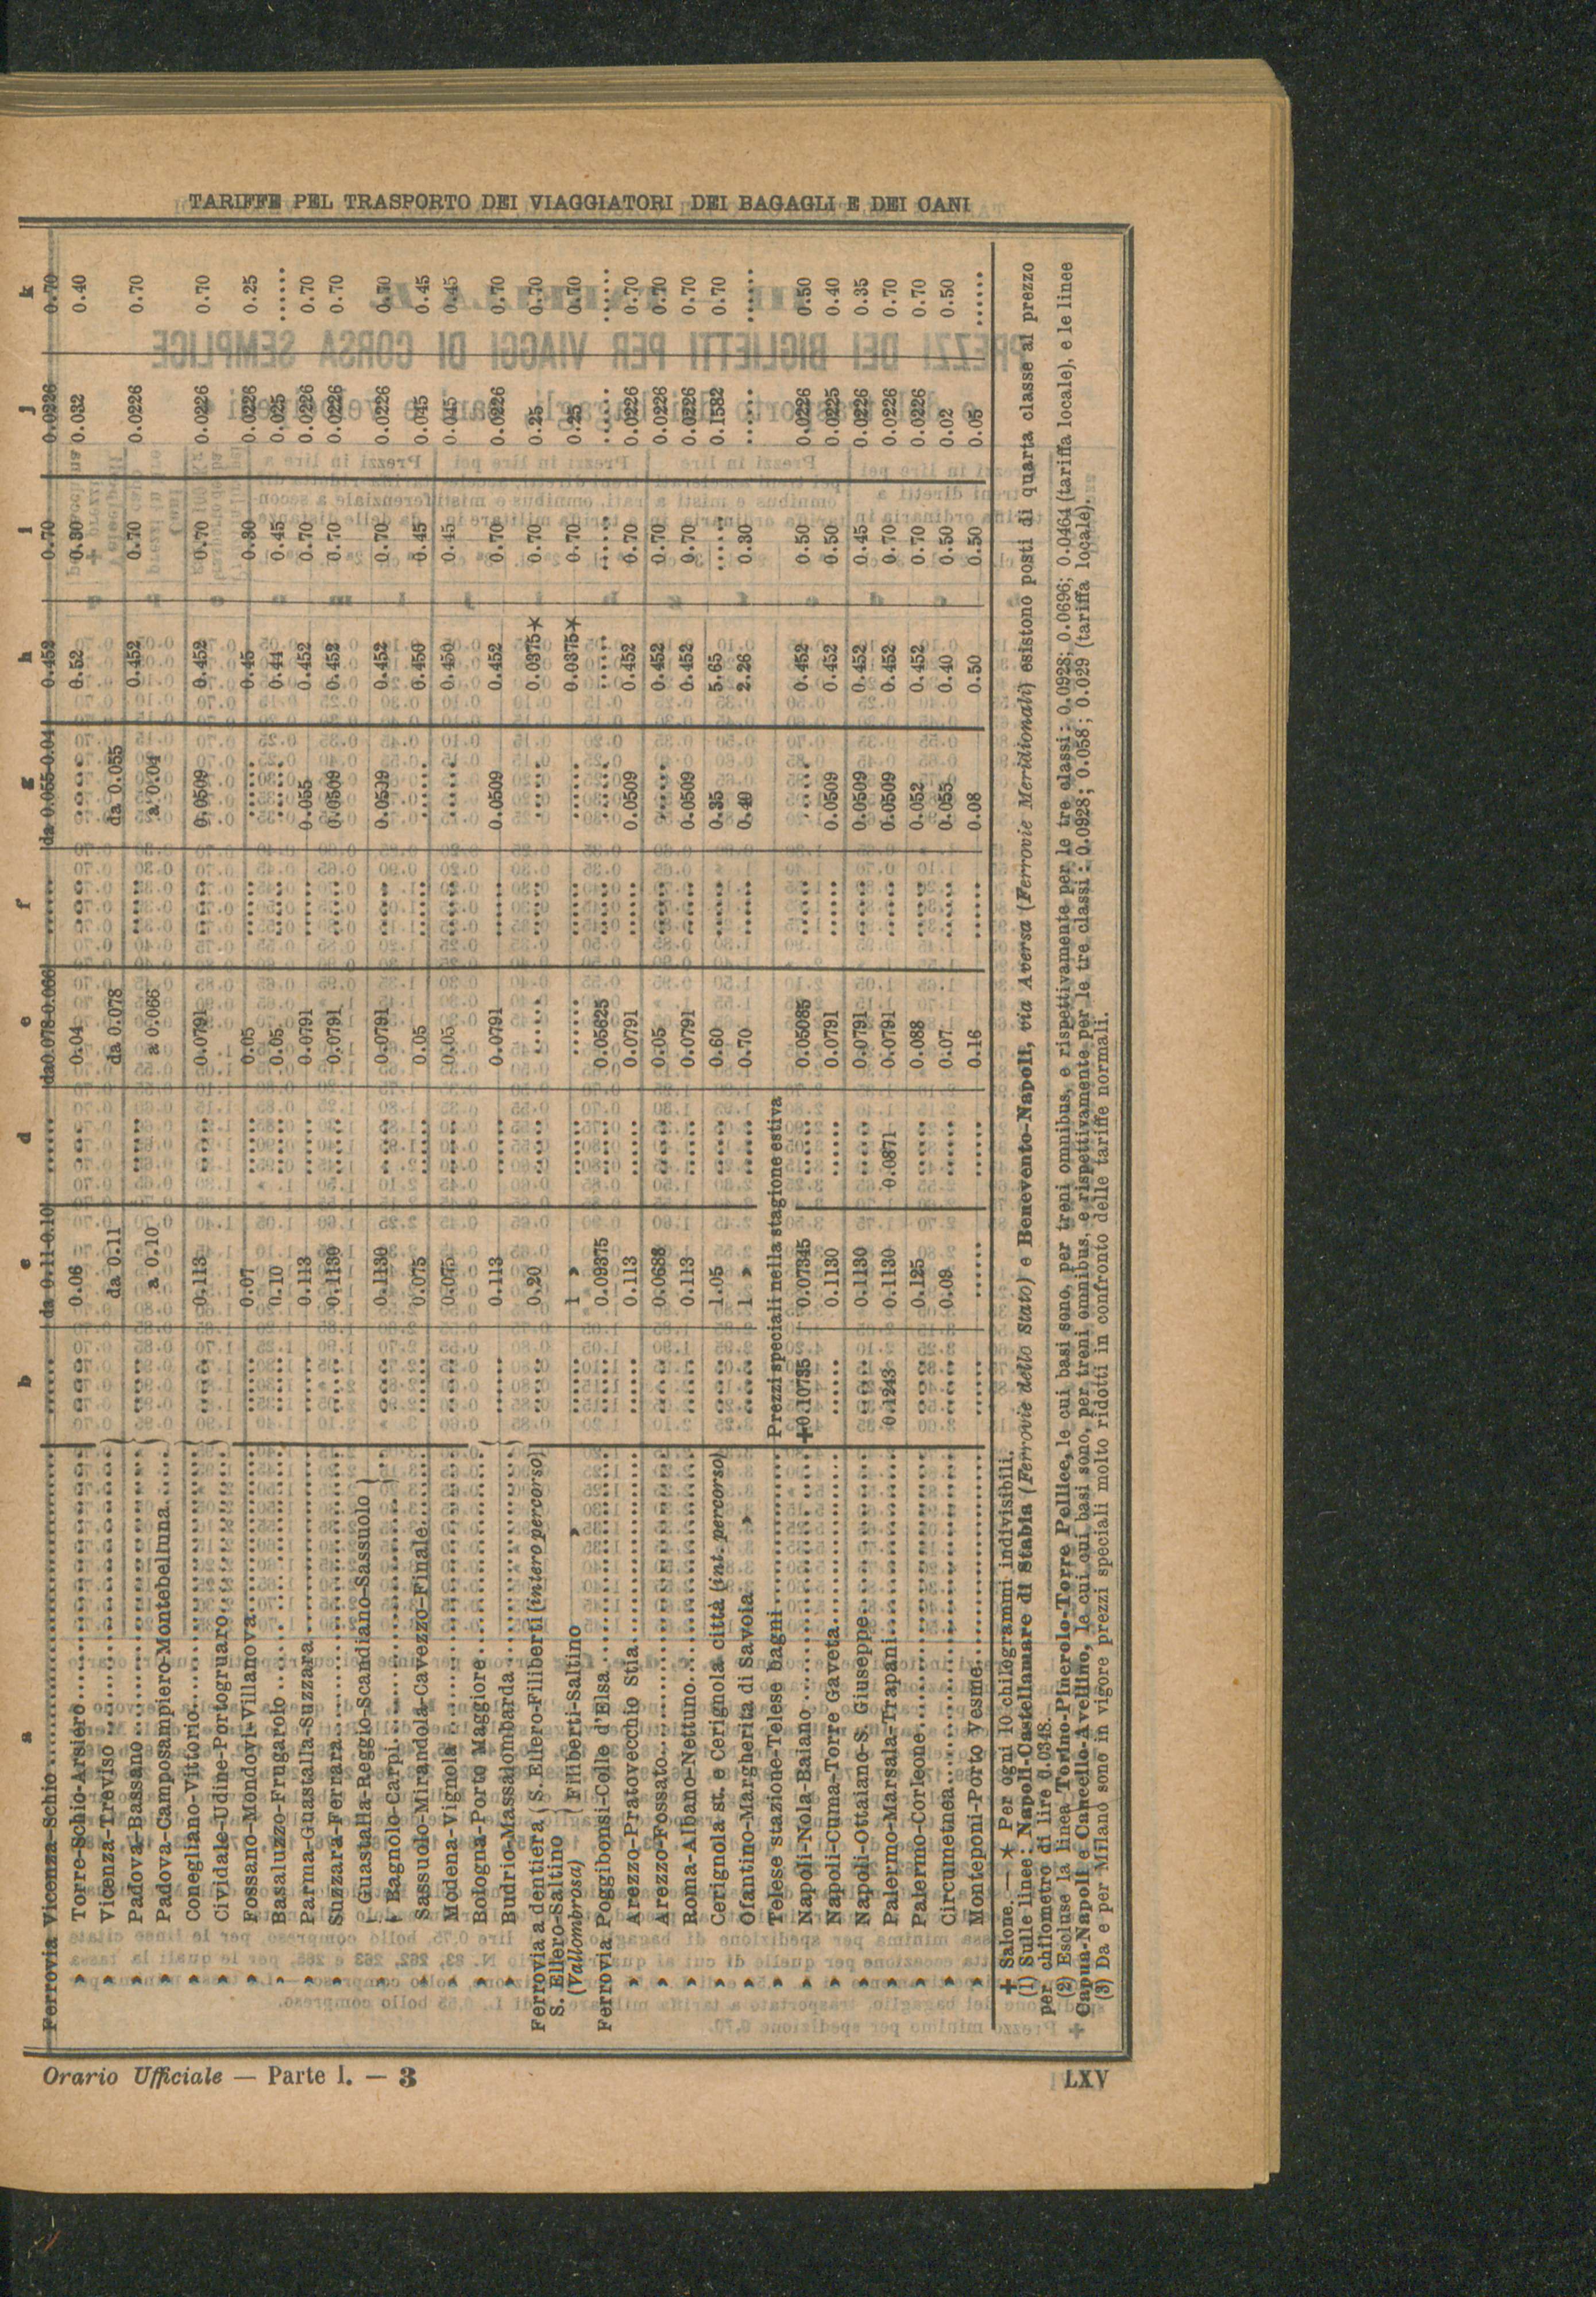 TARIFFE PEL TRASPORTO DEI VIAGGIATORI DEI BAGAGLI E DEI CANI
a b c d e f g h i j k
Ferrovia Vicenza-Schio ...... da 0.11-0.10 ...... da 0.078-0.066 ...... da 0.055-0.04 0.452 0.70 0.0226 0.70
» Torre-Schio-Arsiero ...... 0.06 ...... 0.04 ...... ...... 0.52 0.30 0.032 0.40
» Vicenza-Treviso
» Padova-Bassano ...... da 0.11 a 0.10 ...... da 0.078 a 0.066 ...... da 0.055 a 0.04 0.452 0.70 0.0226 0.70
» Padova-Camposampiero-Montebelluna
» Conegliano-Vittorio ...... 0.113 ...... 0.0791 ...... 0.0509 0.452 0.70 0.0226 0.70
» Cividale-Udine-Portogruaro
» Fossano-Mondovì-Villanova ...... 0.07 ...... 0.05 ...... ...... 0.45 0.30 0.0226 0.25
» Basaluzzo-Frugarolo ...... 0.10 ...... 0.05 ...... ...... 0.44 0.45 0.025 ......
» Parma-Guastalla-Suzzara ...... 0.113 ...... 0.0791 ...... 0.055 0.452 0.70 0.0226 0.70
» Suzzara-Ferrara ...... 0.1130 ...... 0.0791 ...... 0.0509 0.452 0.70 0.0226 0.70
» Guastalla-Reggio-Scandiano-Sassuolo ...... 0.1130 ...... 0.0791 ...... 0.0509 0.452 0.70 0.0226 0.70
» Bagnolo-Carpi
» Sassuolo-Mirandola-Cavezzo-Finale ...... 0.075 ...... 0.05 ...... ...... 0.450 0.45 0.045 0.45
» Modena-Vignola ...... 0.075 ...... 0.05 ...... ...... 0.450 0.45 0.045 0.45
» Bologna-Porto Maggiore ...... 0.113 ...... 0.0791 ...... 0.0509 0.452 0.70 0.0226 0.70
» Budrio-Massalombarda
Ferrovia a dentiera S. Ellero-Saltino (Vallombrosa)
S. Ellero-Filiberti (intero percorso) ...... 0.20 ...... ...... ...... ...... 0.0375★ 0.70 0.25 0.70
Filiberti-Saltino » ...... 1 » ...... ...... ...... ...... 0.0375★ 0.70 0.25 0.70
Ferrovia Poggibonsi-Colle d'Elsa ...... 0.09375 ...... 0.05625 ...... ...... ...... ...... ...... ......
» Arezzo-Pratovecchio Stia ...... 0.113 ...... 0.0791 ...... 0.0509 0.452 0.70 0.0226 0.70
» Arezzo-Fossato ...... 0.0688 ...... 0.05 ...... ...... 0.452 0.70 0.0226 0.70
» Roma-Albano-Nettuno ...... 0.113 ...... 0.0791 ...... 0.0509 0.452 0.70 0.0226 0.70
» Cerignola st. e Cerignola città (int. percorso) ...... 1.05 ...... 0.60 ...... 0.35 5.65 ...... 0.1582 0.70
» Ofantino-Margherita di Savoia » ...... 1 » ...... 0.70 ...... 0.40 2.26 0.30 ...... ......
» Telese stazione-Telese bagni ...... Prezzi speciali nella stagione estiva
» Napoli-Nola-Baiano ...... ✚0.10735 0.07345 ...... 0.05085 ...... ...... 0.452 0.50 0.0226 0.50
» Napoli-Cuma-Torre Gaveta ...... 0.1130 ...... 0.0791 ...... 0.0509 0.452 0.50 0.0225 0.40
» Napoli-Ottaiano-S. Giuseppe ...... 0.1130 ...... 0.0791 ...... 0.0509 0.452 0.45 0.0226 0.35
» Palermo-Marsala-Trapani 0.1243 0.1130 0.0871 0.0791 ...... 0.0509 0.452 0.70 0.0226 0.70
» Palermo-Corleone ...... 0.125 ...... 0.088 ...... 0.052 0.452 0.70 0.0226 0.70
» Circumetnea ...... 0.09 ...... 0.07 ...... 0.055 0.40 0.50 0.02 0.50
» Monteponi-Porto Vesme ...... ...... ...... 0.16 ...... 0.08 0.50 0.50 0.05 ......
✚ Salone. — ★ Per ogni 10 chilogrammi indivisibili.
(1) Sulle linee: Napoli-Castellamare di Stabia (Ferrovie dello Stato) e Benevento-Napoli, via Aversa (Ferrovie Meridionali) esistono posti di quarta classe al prezzo
per chilometro di lire 0.0348.
(2) Escluse la linea Torino-Pinerolo-Torre Pellice, le cui basi sono, per treni omnibus, e rispettivamente per le tre classi: 0.0928; 0.0696; 0.0464 (tariffa locale), e le linee
Capua-Napoli e Cancello-Avellino, le cui basi sono, per treni omnibus, e rispettivamente per le tre classi: 0.0928; 0.058; 0.029 (tariffa locale).
(3) Da e per Milano sono in vigore prezzi speciali molto ridotti in confronto delle tariffe normali.
Orario Ufficiale — Parte I. — 3
LXV